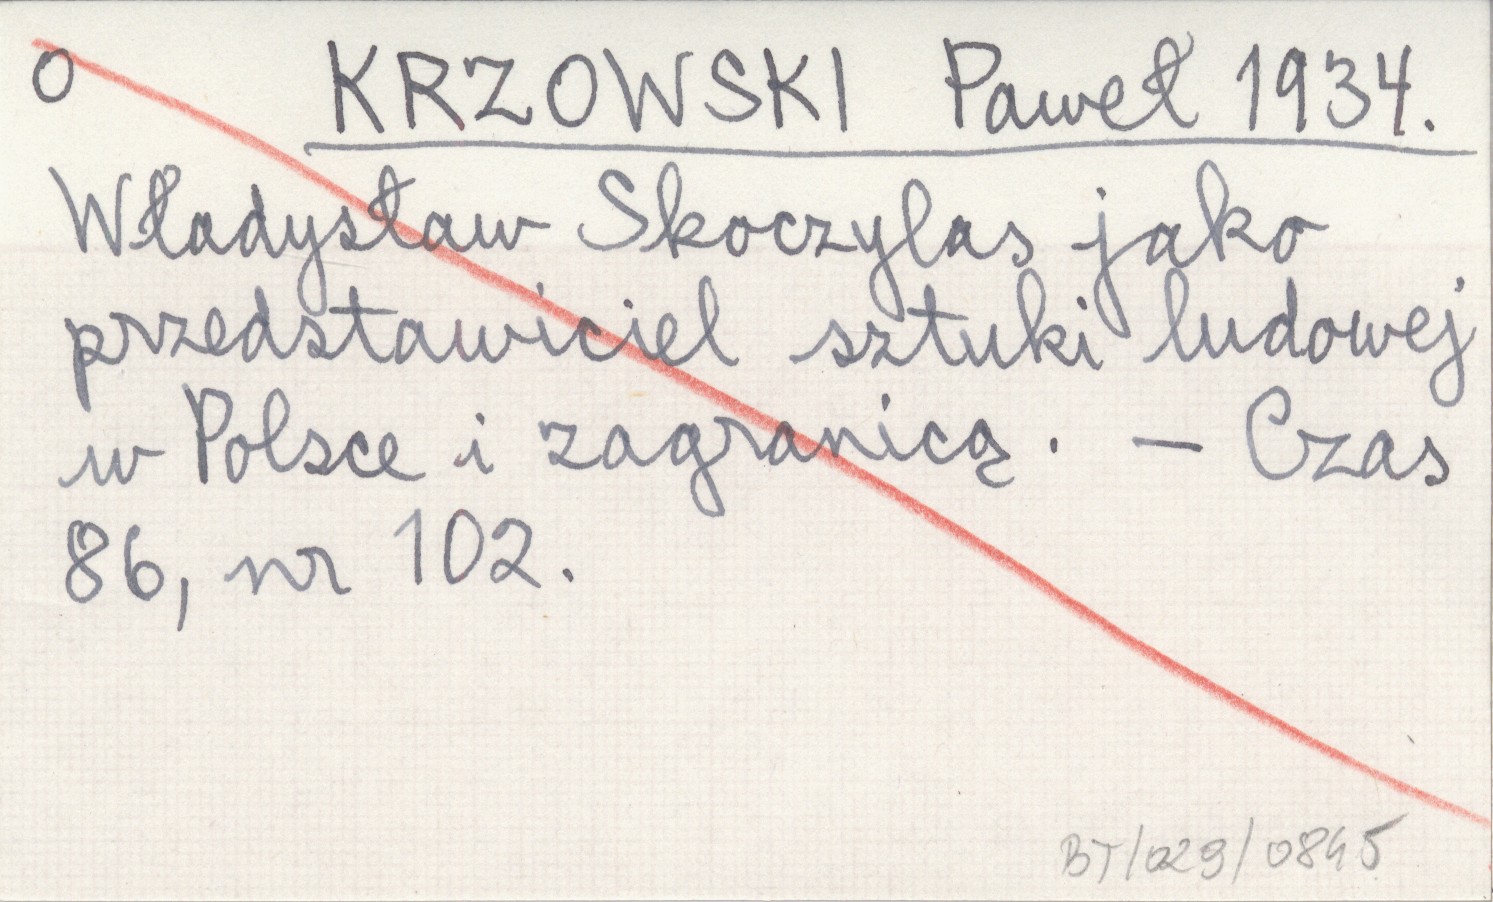 o KRZOWSKI Paweł 1934.
Władysław Skoczylas jako
przedstawiciel sztuki ludowej
w Polsce i zagranicą. — Czas
86, nr 102.
BT/029/0845